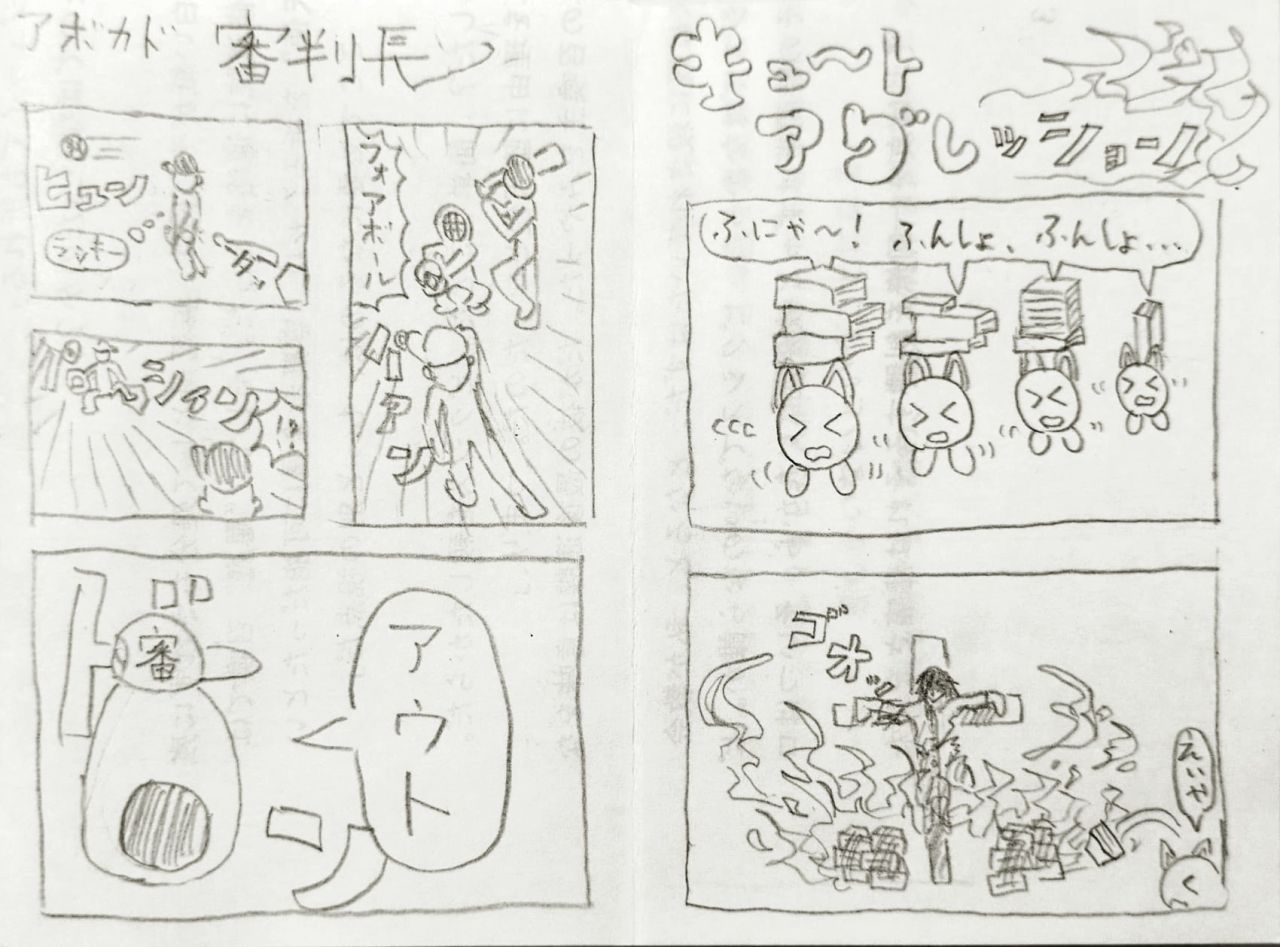 アボカド 審判長
フォアボール
ヒュン
ラッキー
ダッ
シィン
審
アウト
キュ〜ト
アグレッショール
ふにゃ〜! ふんしょ、ふんしょ…
ゴオッ
えいや